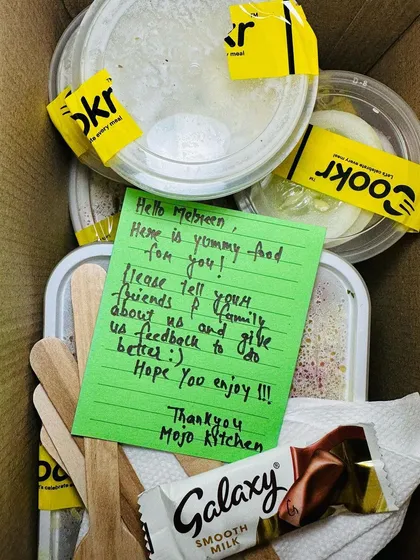 kr™
okr
e every meal
Cookr™
Let's celebrate every meal
Hello Mebreen,
Here is yummy food
for you!
Please tell your
friends & family
about us and give
us feedback to do
better :)
Hope You enjoy !!!
Thankyou
Mojo Kitchen
t's celebrate every meal
Galaxy®
SMOOTH
MILK